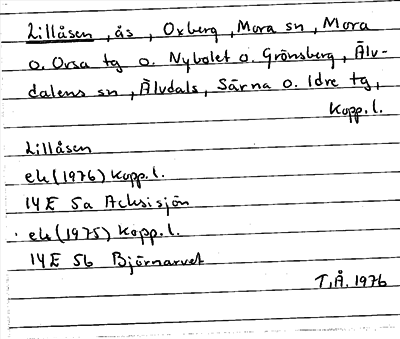 Lillåsen, ås, Oxberg, Mora sn, Mora
o. Orsa tg o. Nybolet o. Grönsberg, Älv-
dalens sn, Älvdals, Särna o. Idre tg,
Kopp. l.
Lillåsen
ek (1976) Kopp. l.
14E 5a Acksisjön
ek (1975) Kopp. l.
14E 5b Björnarvet
T.Å. 1976